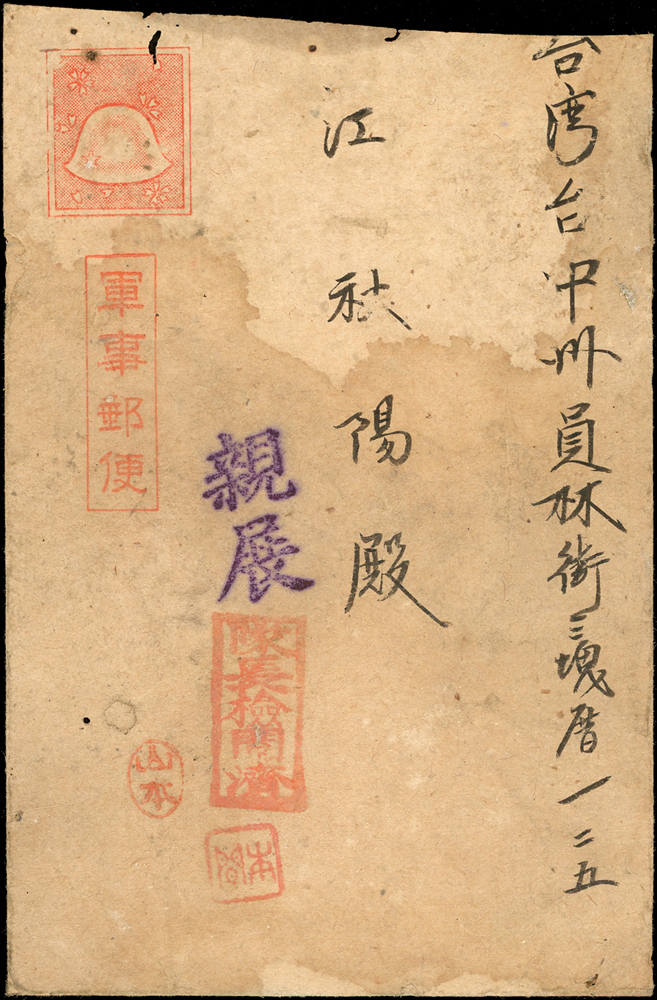 台湾台中州員林街三塊厝一二五
江秋陽殿
親展
隊長検閲済
本間
軍事郵便
山本